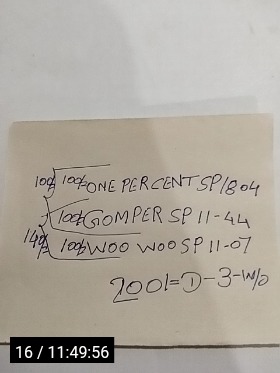 100% 100% ONE PERCENT SP 1804
100% GOMPER SP 11-44
140% 100% WOO WOO SP 11-07
2001=①-3-W/o
16 / 11:49:56